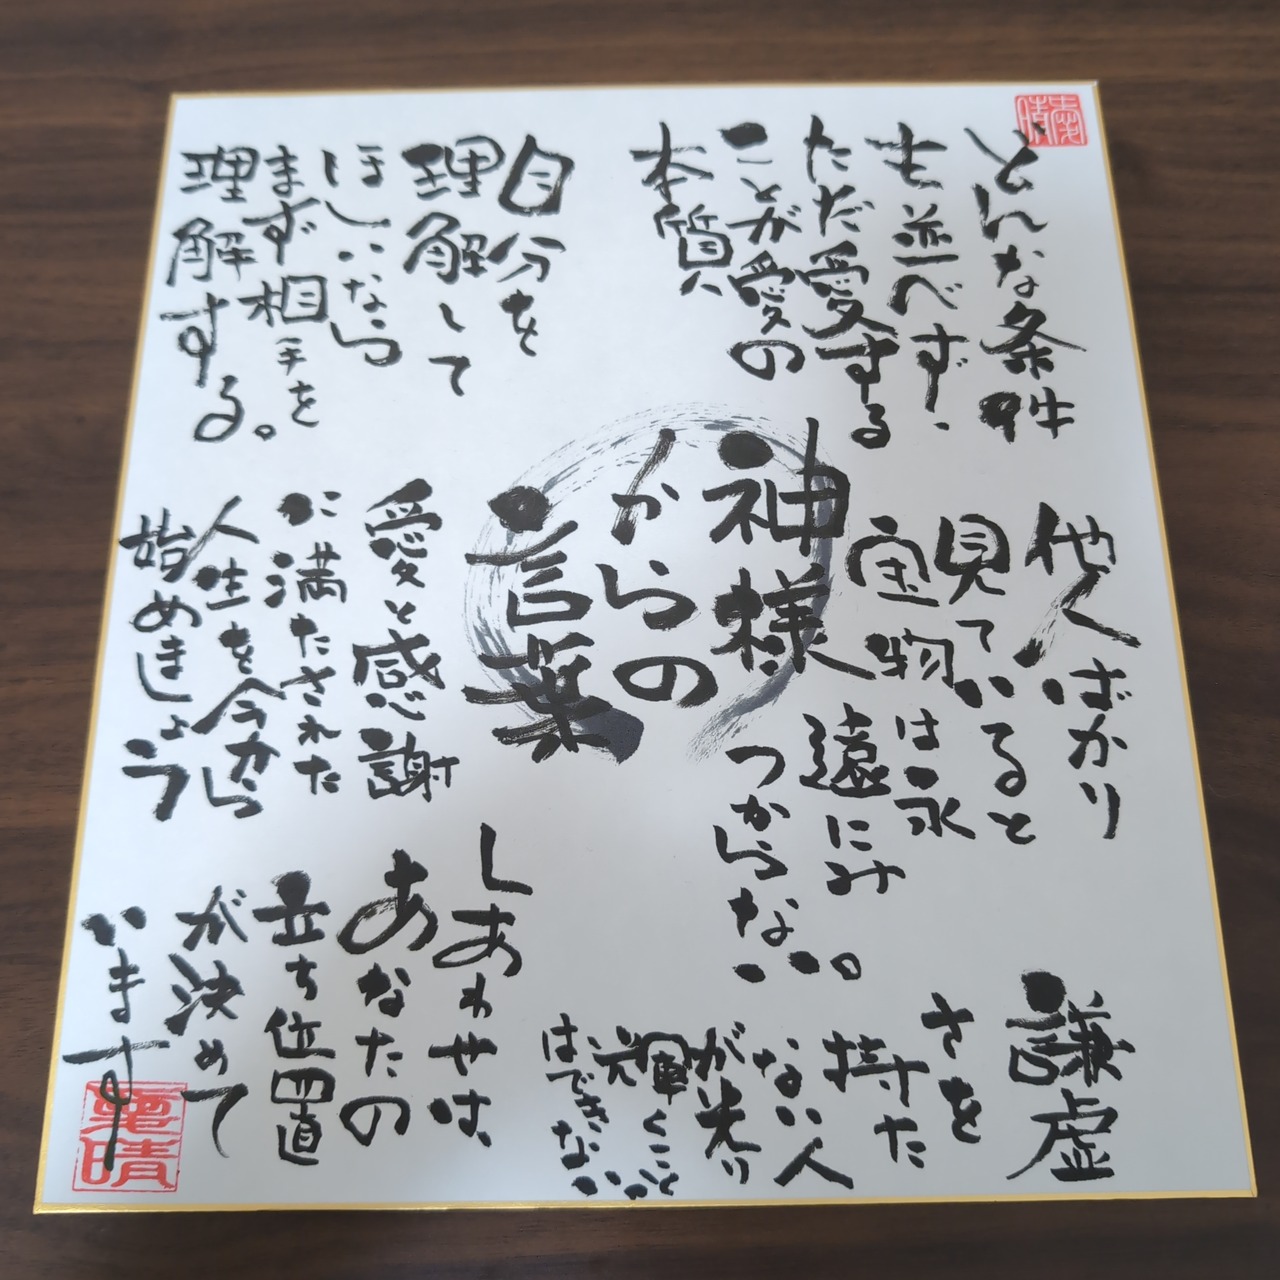 どんな条件
も並べず、
ただ愛する
ことが愛の
本質
自分を
理解して
ほしいなら
まず相手を
理解する。
神様
からの
言葉
他人ばかり
見ていると
宝物は永
遠にみ
つからない。
愛と感謝
に満たされた
人生を今から
始めましょう
謙虚
さを
持た
ない人
が光り
輝くこと
はできない
しあわせは、
あなたの
立ち位置
が決めて
います